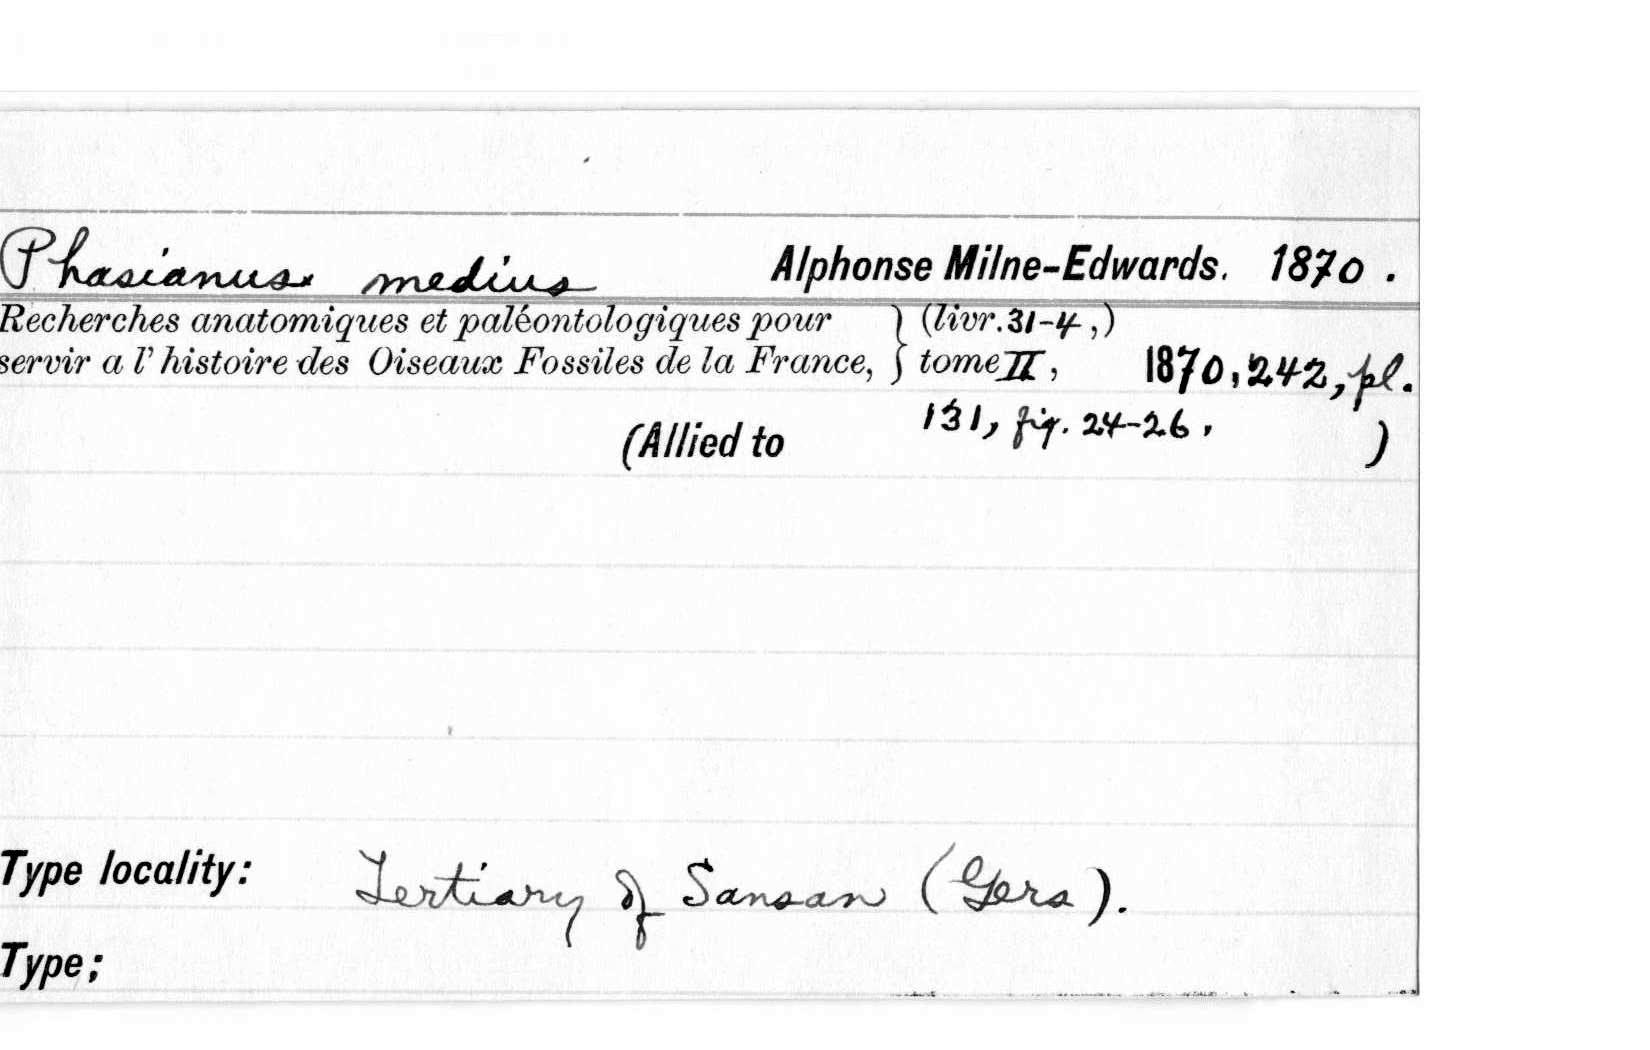 Phasianus medius Alphonse Milne-Edwards. 1870.
Recherches anatomiques et paléontologiques pour } (livr.31-4,)
servir a l'histoire des Oiseaux Fossiles de la France, } tome II, 1870, 242, pl.
131, fig. 24-26.
(Allied to )
Type locality: Tertiary of Sansan (Gers).
Type;